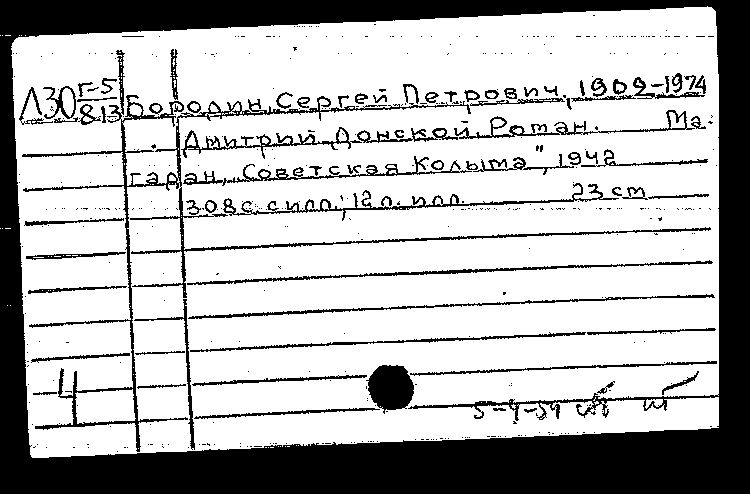 Л30 Г-5/813 Бородин, Сергей Петрович, 1909-1974
Дмитрий Донской. Роман. Ма-
гадан, „Советская Колыма", 1942
308 с. с илл.; 12 л. илл. 23 cm
4
5-4-59